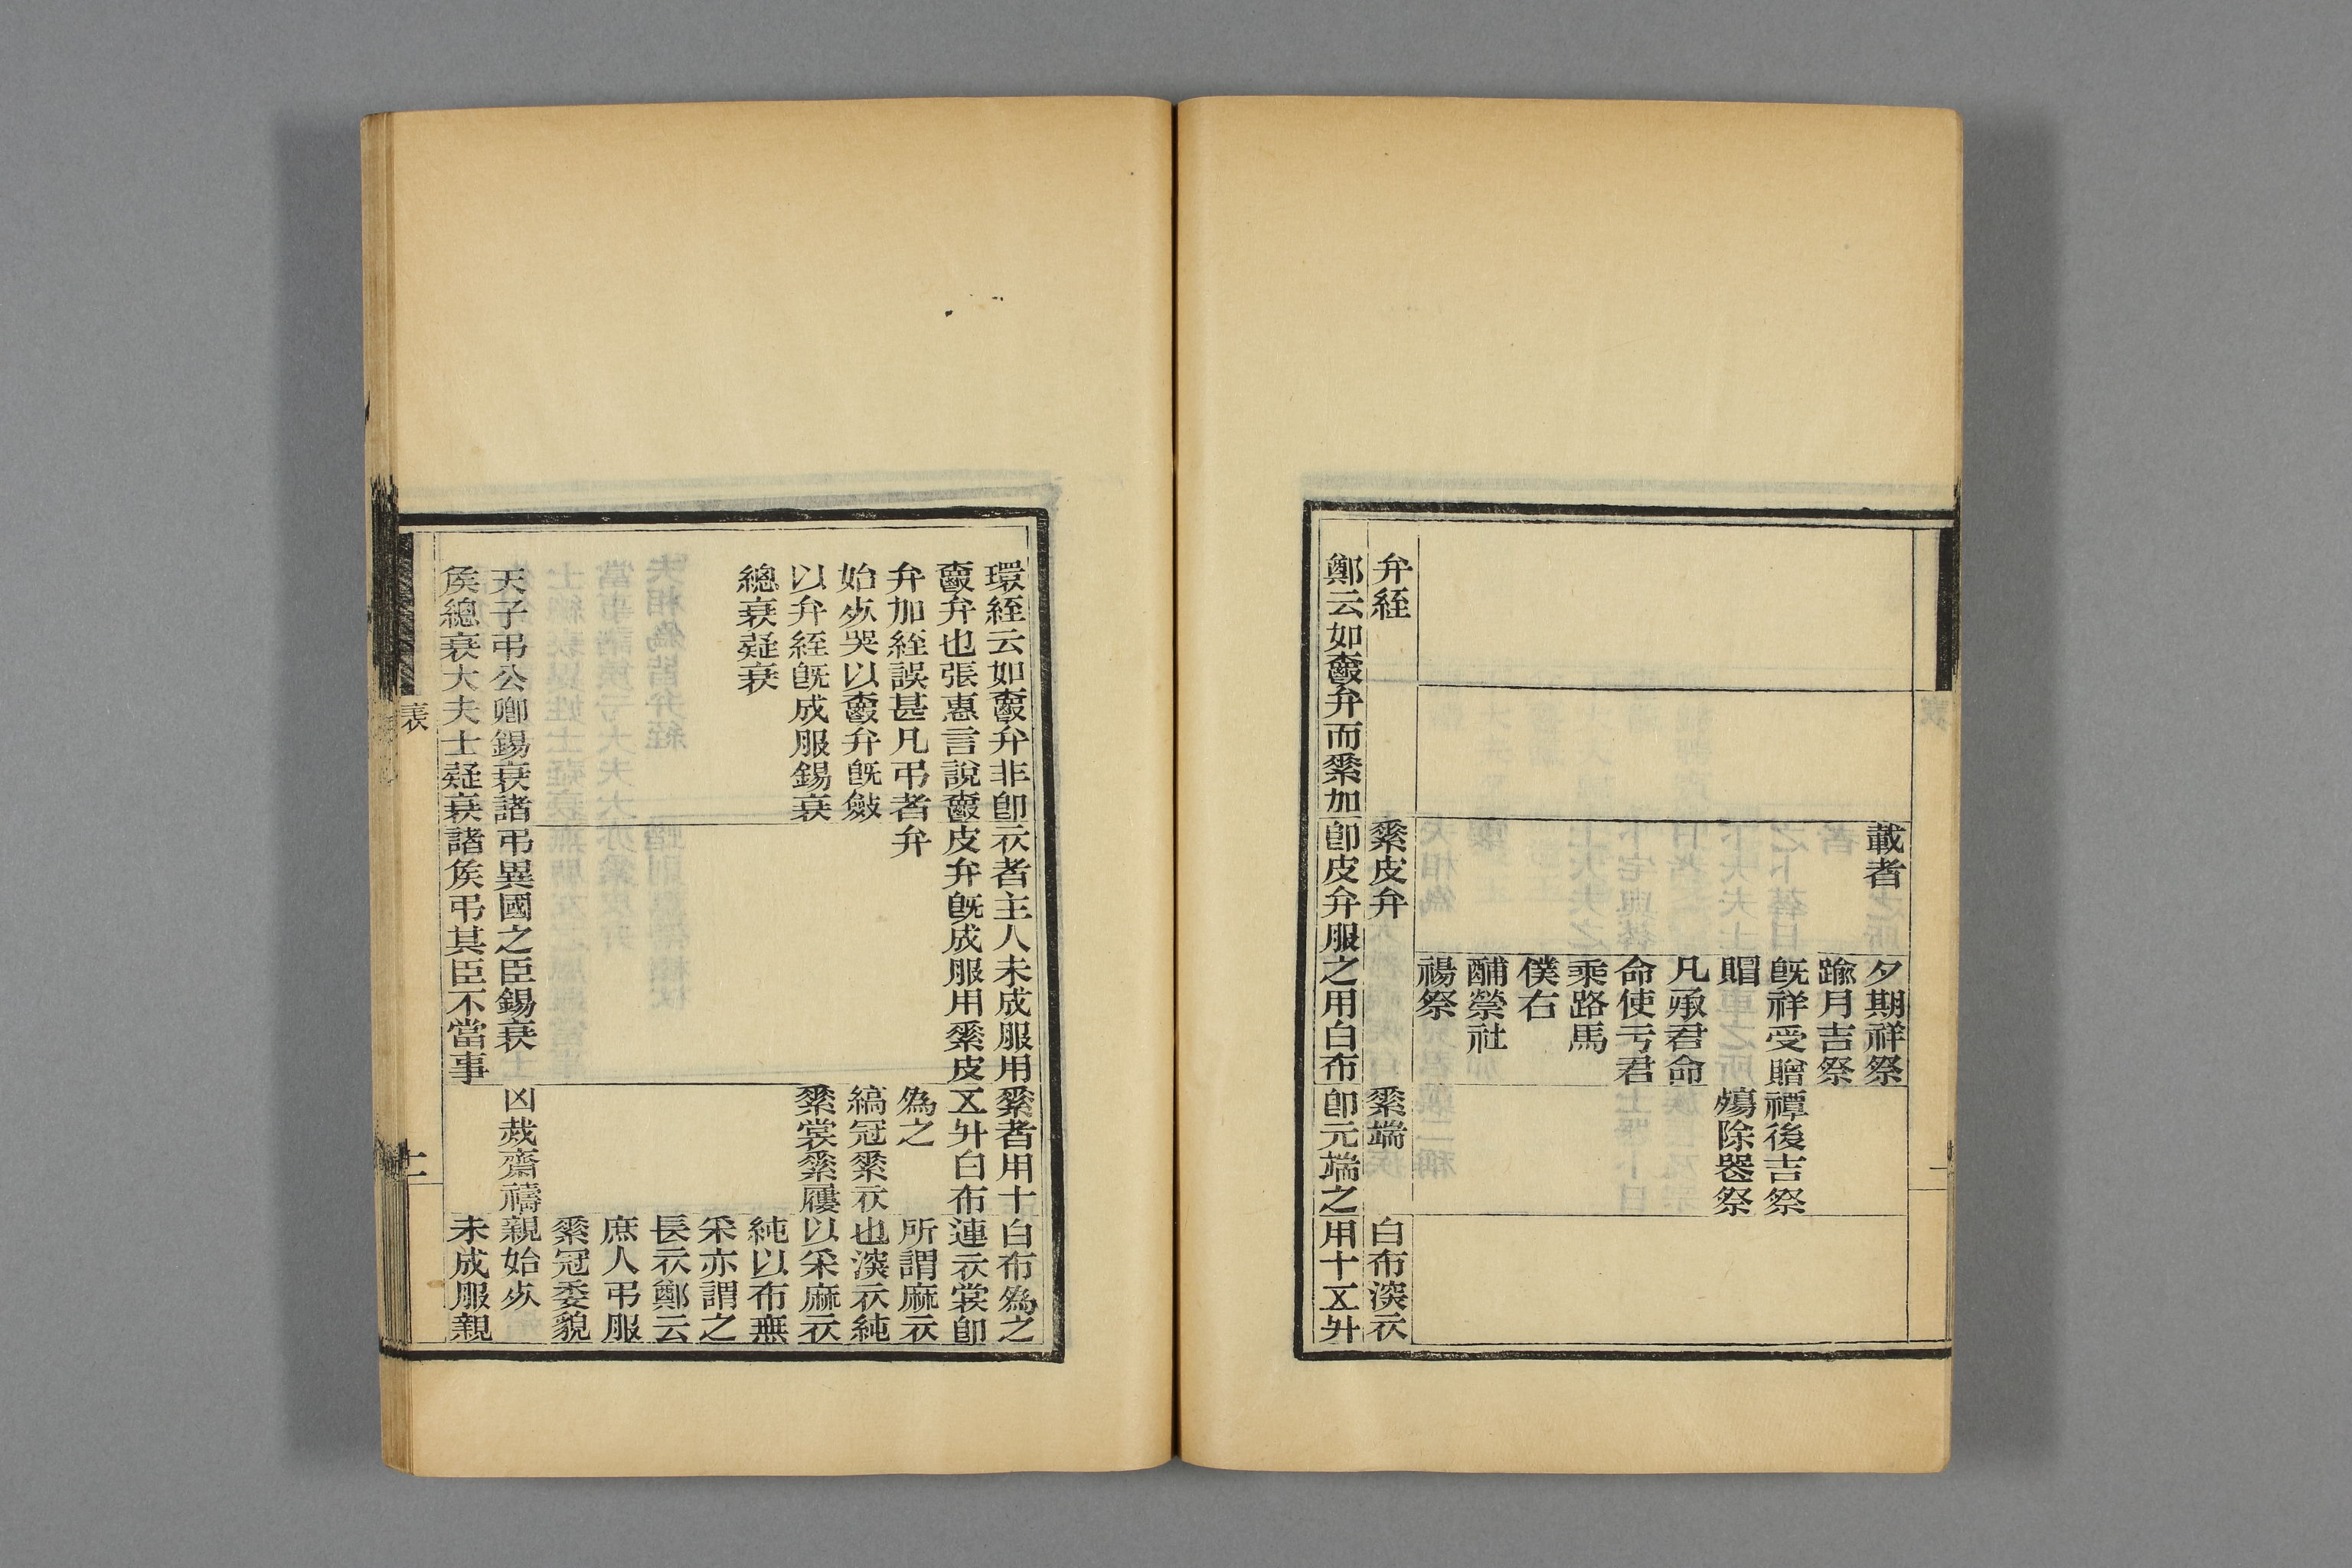 載者 夕期祥祭
踰月吉祭
旣祥受贈 禫後吉祭
賵 殤除喪祭
凡承君命
命使亏君
乘路馬
僕右
酺禜社
禓祭
弁絰 素皮弁 素端 白布深衣
鄭云如爵弁而素加 卽皮弁服之用白布 卽元端之用十五升
環絰云如爵弁非卽 衣者主人未成服用 素者用十 白布為之
爵弁也張惠言說爵 皮弁旣成服用素皮 五升白布 連衣裳卽
弁加絰誤甚凡弔者 弁 為之 所謂麻衣
始死哭以爵弁旣斂 縞冠素衣 也深衣純
以弁絰旣成服錫衰 素裳素屨 以采麻衣
緦衰疑衰 純以布無
采亦謂之
長衣鄭云
庶人弔服
素冠委貌
天子弔公卿錫衰諸 弔異國之臣錫衰 凶烖齋禱 親始死
侯緦衰大夫士疑衰 諸侯弔其臣不當事 未成服親
表